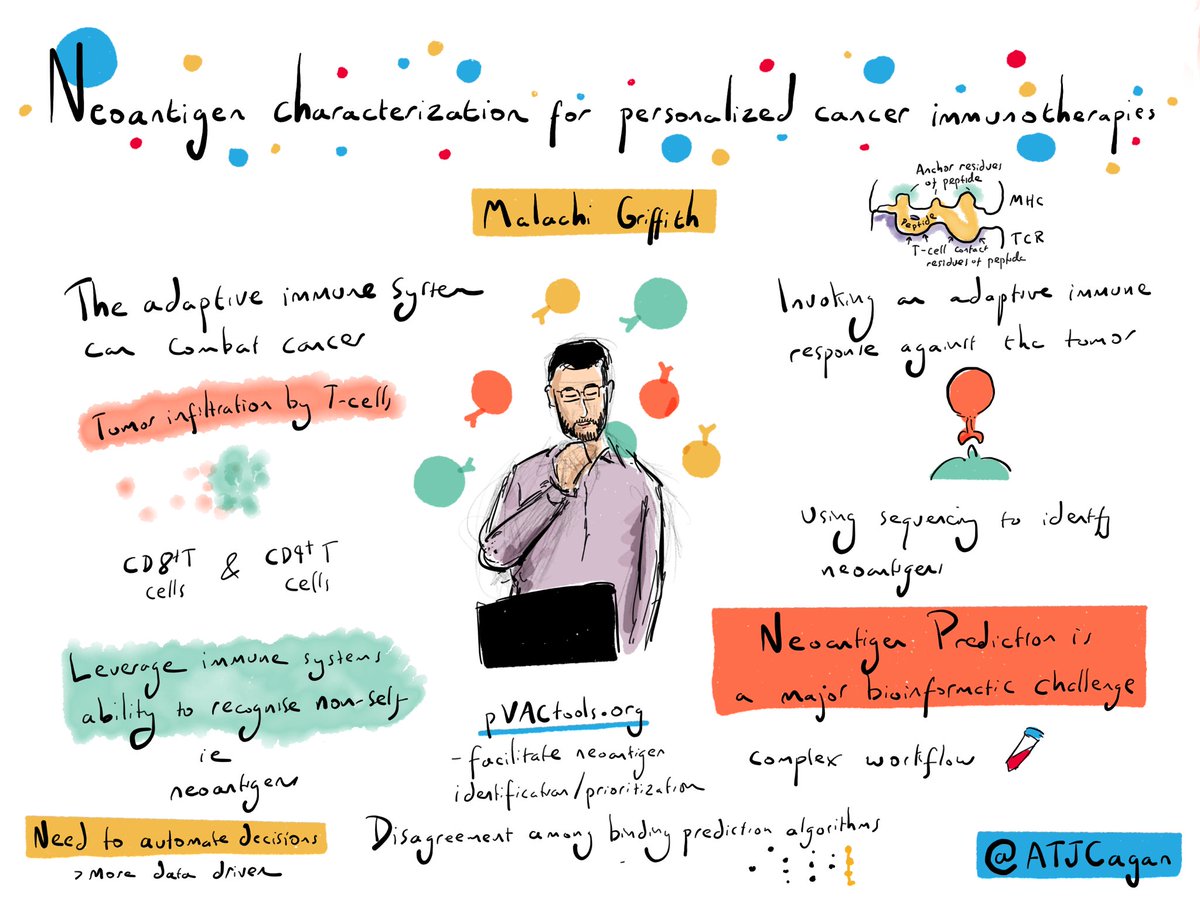 Neoantigen characterization for personalized cancer immunotherapies
Malachi Griffith
Anchor residues
of peptide
MHC
Peptide
TCR
T-cell contact
residues of peptide
The adaptive immune system
can combat cancer
Tumor infiltration by T-cells
CD8+T
cells
&
CD4+ T
cells
Leverage immune systems
ability to recognise non-self
ie
neoantigens
Need to automate decisions
> More data driven
pVACtools.org
- facilitate neoantigen
identification/prioritization
Disagreement among binding prediction algorithms
Invoking an adaptive immune
response against the tumor
Using sequencing to identify
neoantigens
Neoantigen Prediction is
a major bioinformatic challenge
complex workflow
@ATJCagan